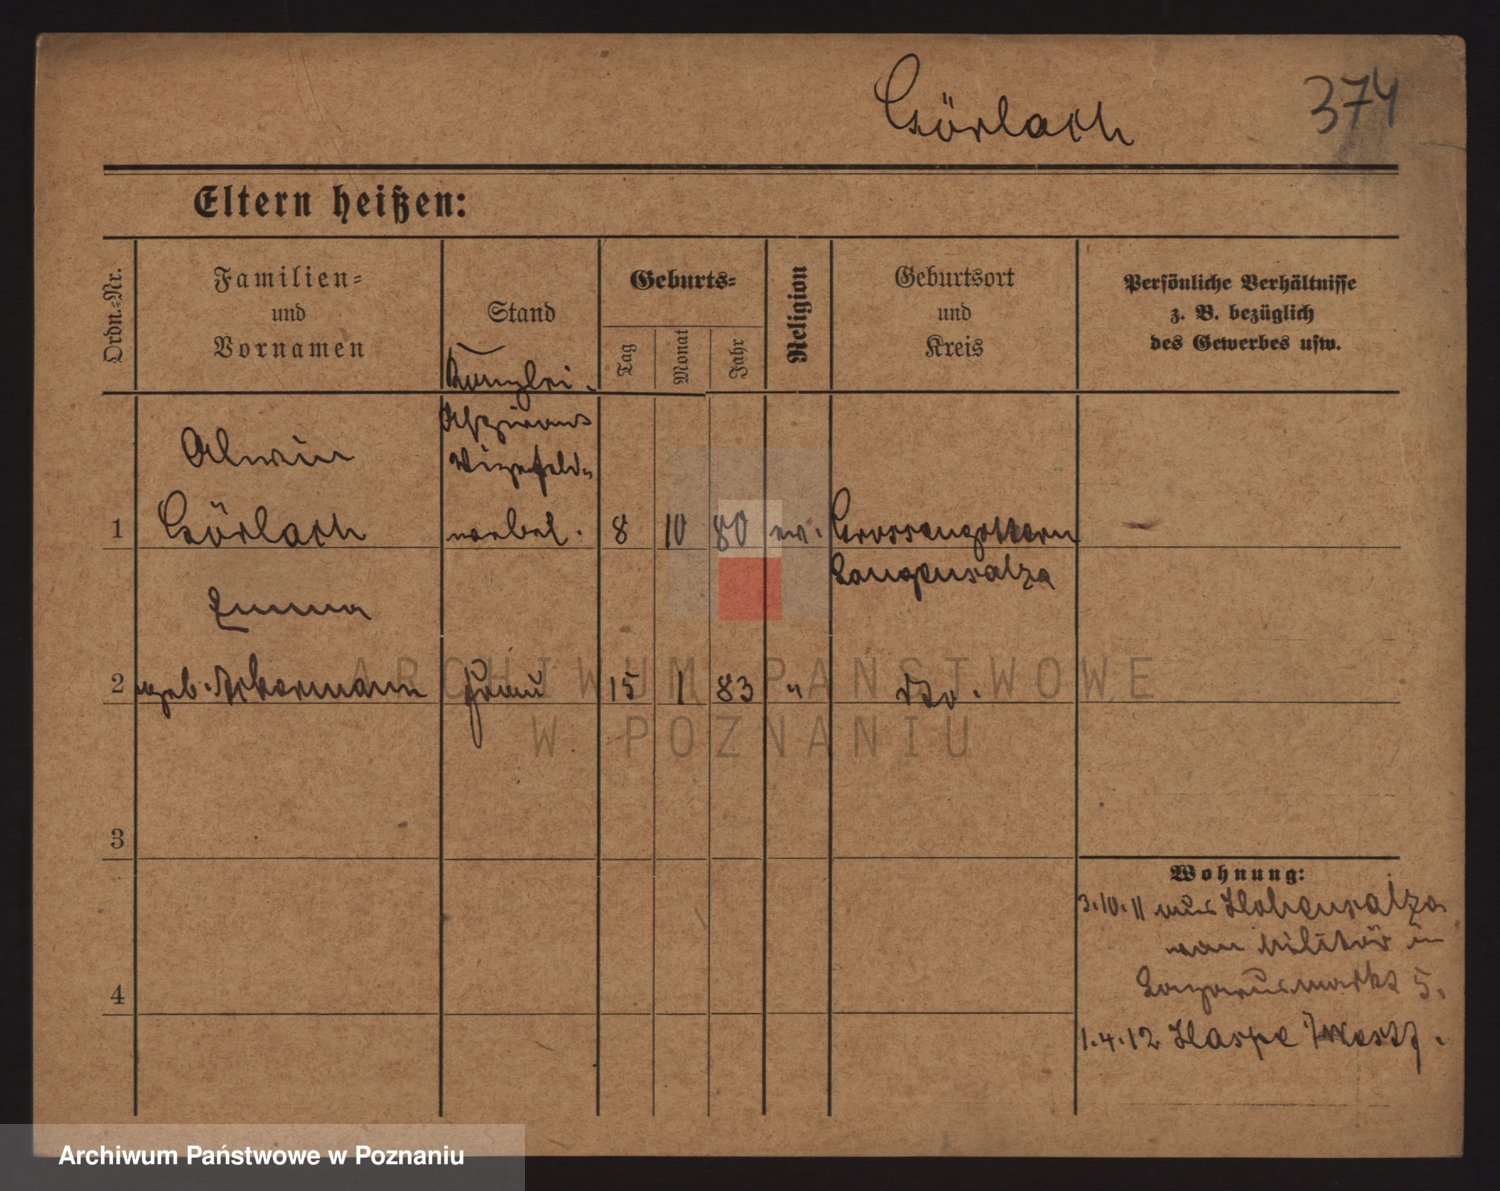 Görlach
374
Eltern heißen:
Ordn.-Nr.
Familien-
und
Vornamen
Stand
Geburts-
Tag
Monat
Jahr
Religion
Geburtsort
und
Kreis
Persönliche Verhältnisse
z. B. bezüglich
des Gewerbes usw.
Kanzlei-
Aspirant
Vizefeld-
webel.
Alwin
1 Görlach 8 10 80 ev. Grossengottern
Langensalza
Emma
2 geb. Ackermann Frau 15 1 83 " do.
3
4
Wohnung:
3.10.11 aus Hohensalza
vom Militär in
Lazarusmarkt 5.
1.4.12 Haspe i/Westf.
ARCHIWUM PAŃSTWOWE
W POZNANIU
Archiwum Państwowe w Poznaniu